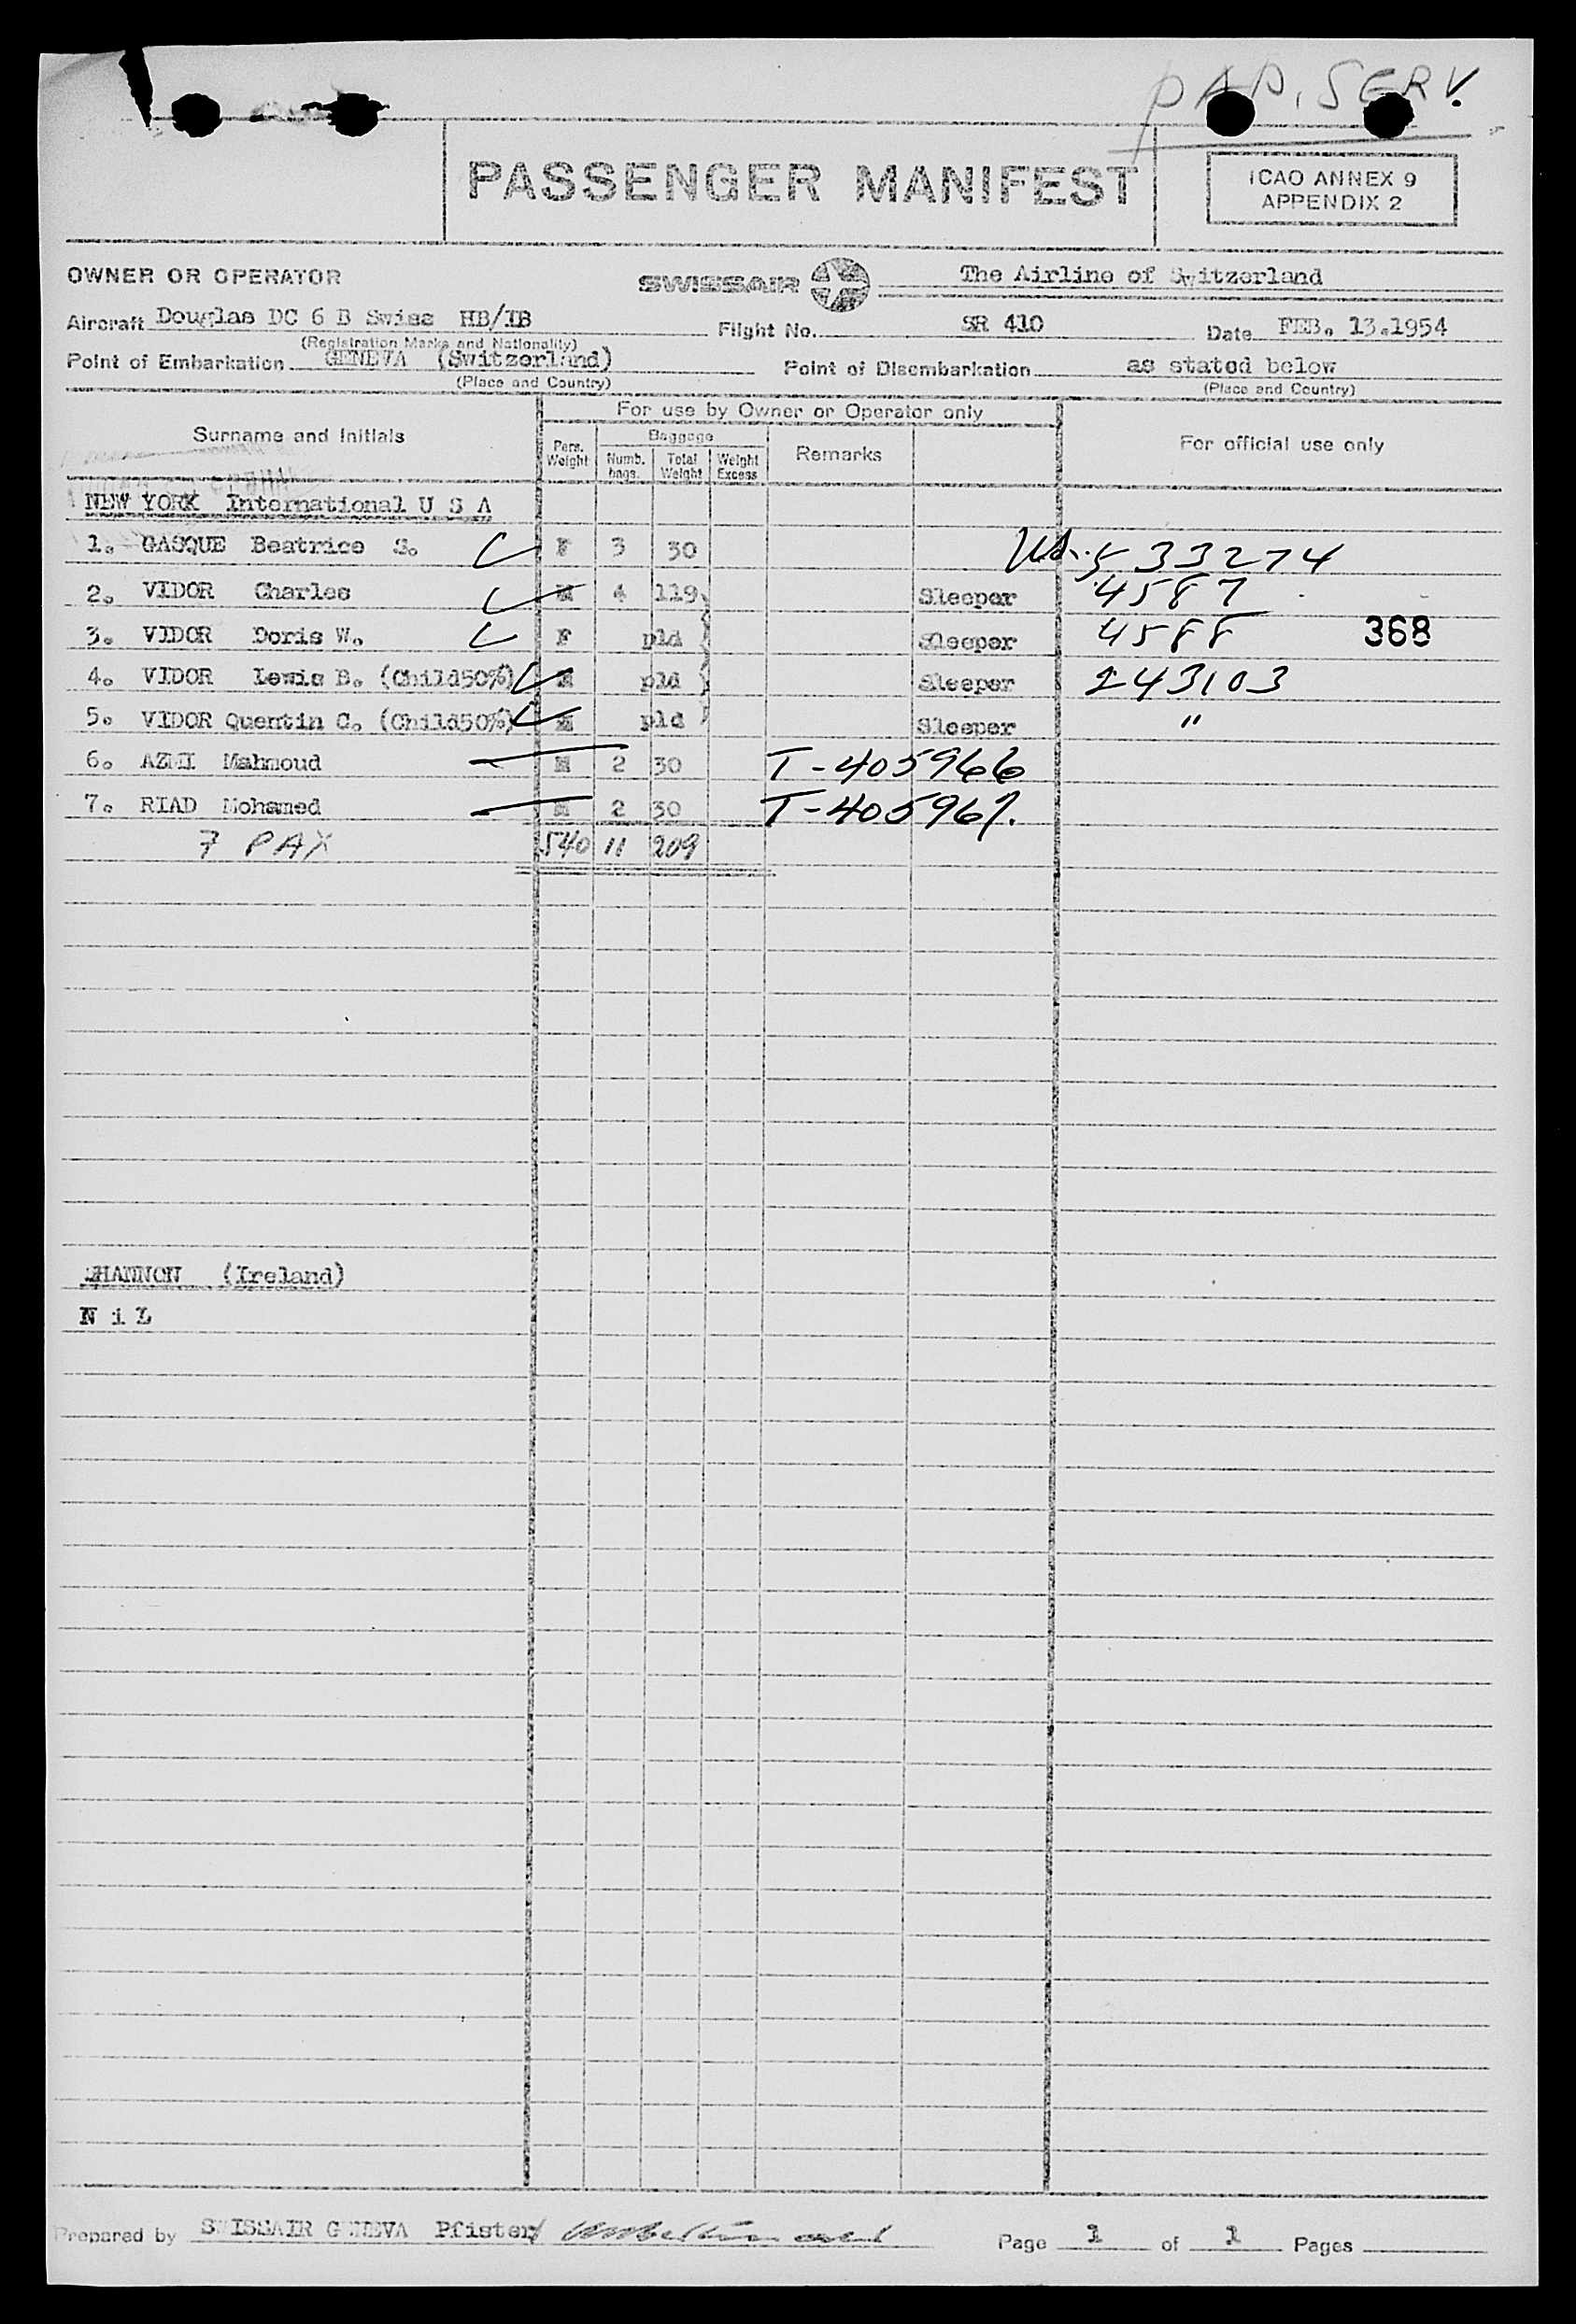 PAP. SERV.
PASSENGER MANIFEST
ICAO ANNEX 9
APPENDIX 2
OWNER OR OPERATOR SWISSAIR The Airline of Switzerland
Aircraft Douglas DC 6 B Swiss HB/IB Flight No. SR 410 Date FEB. 13.1954
(Registration Marks and Nationality)
Point of Embarkation GENEVA (Switzerland) Point of Disembarkation as stated below
(Place and Country) (Place and Country)
For use by Owner or Operator only
Surname and Initials Pers. Weight Baggage Numb. bags. Total Weight Weight Excess Remarks For official use only
NEW YORK International U S A
1. GASQUE Beatrice S. F 3 30 533274
2. VIDOR Charles M 4 119 Sleeper 4587
3. VIDOR Doris W. F pld Sleeper 4588 368
4. VIDOR Lewis B. (Child50%) M pld Sleeper 243103
5. VIDOR Quentin C. (Child50%) M pld Sleeper "
6. AZMI Mahmoud M 2 30 T-405966
7. RIAD Mohamed M 2 30 T-405967.
7 PAX 540 11 209
SHANNON (Ireland)
N i L
Prepared by SWISSAIR GENEVA Pfister/ Page 1 of 1 Pages